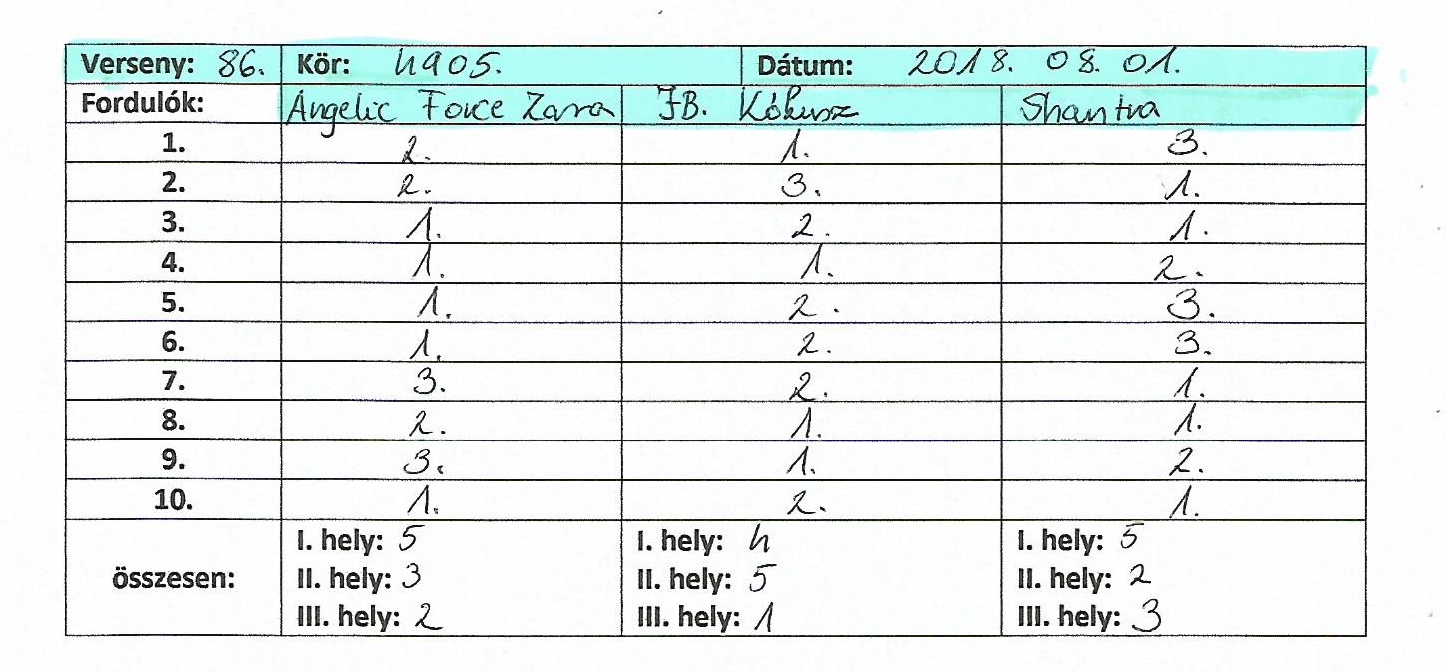 Verseny: 86. Kör: 4905. Dátum: 2018. 08. 01.
Fordulók: Angelic Force Zara JB. Kókusz Shantra
1. 2. 1. 3.
2. 2. 3. 1.
3. 1. 2. 1.
4. 1. 1. 2.
5. 1. 2. 3.
6. 1. 2. 3.
7. 3. 2. 1.
8. 2. 1. 1.
9. 3. 1. 2.
10. 1. 2. 1.
összesen:
I. hely: 5 I. hely: 4 I. hely: 5
II. hely: 3 II. hely: 5 II. hely: 2
III. hely: 2 III. hely: 1 III. hely: 3